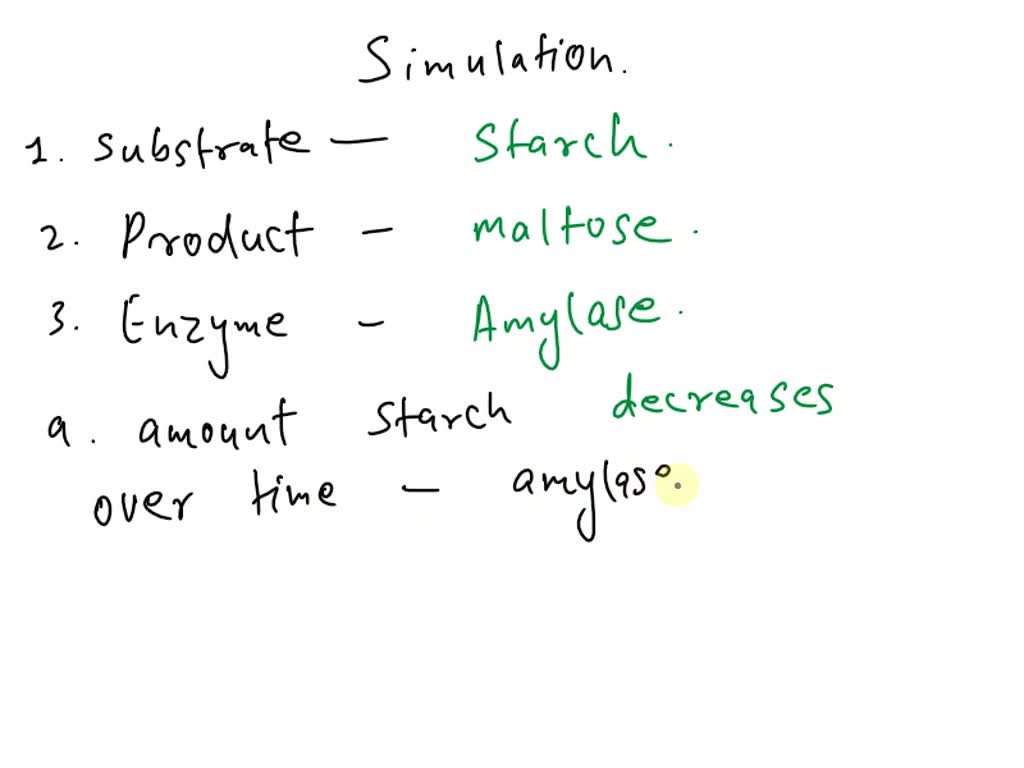 Simulation.
1. Substrate — Starch.
2. Product – maltose.
3. Enzyme – Amylase.
a. amount starch decreases
over time – amylase